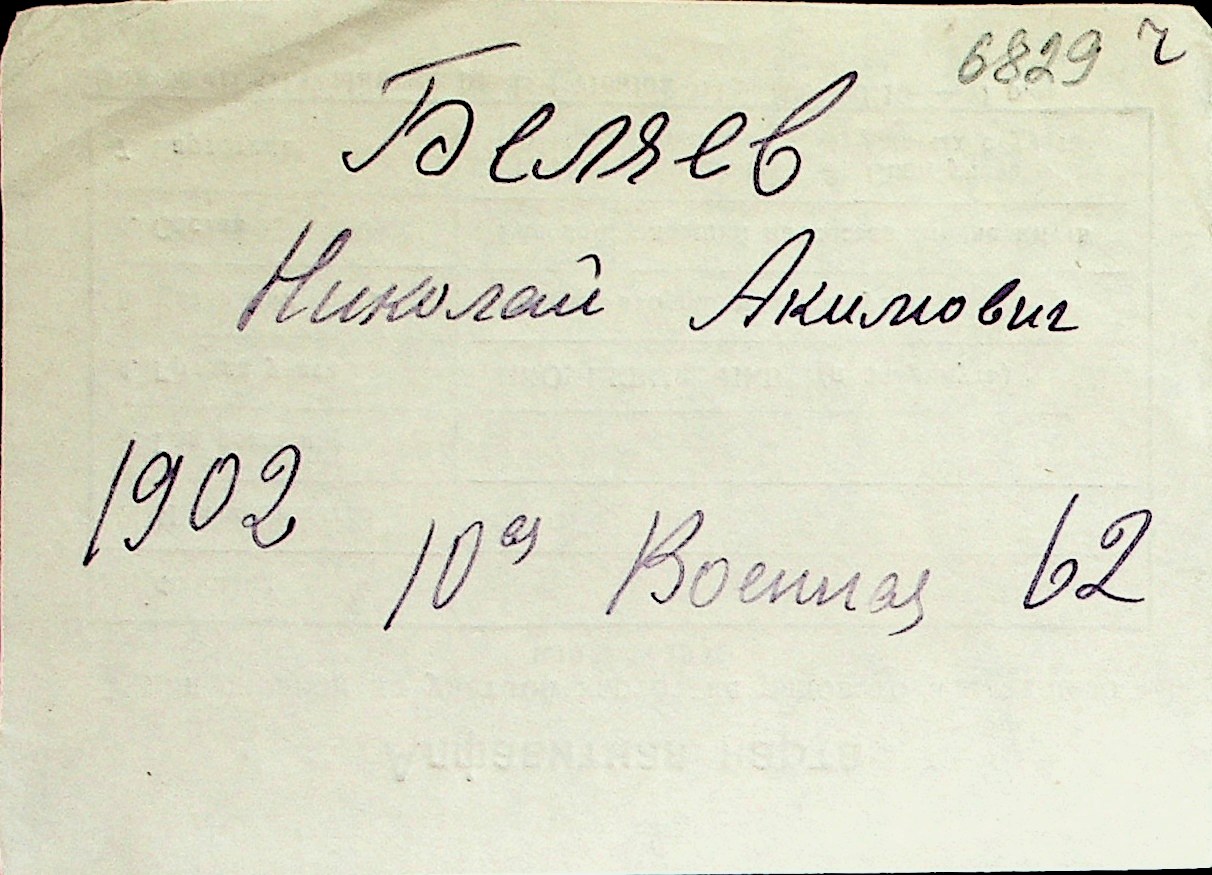 6829 ч
Беляев
Николай Акимович
1902
10ая Военная 62